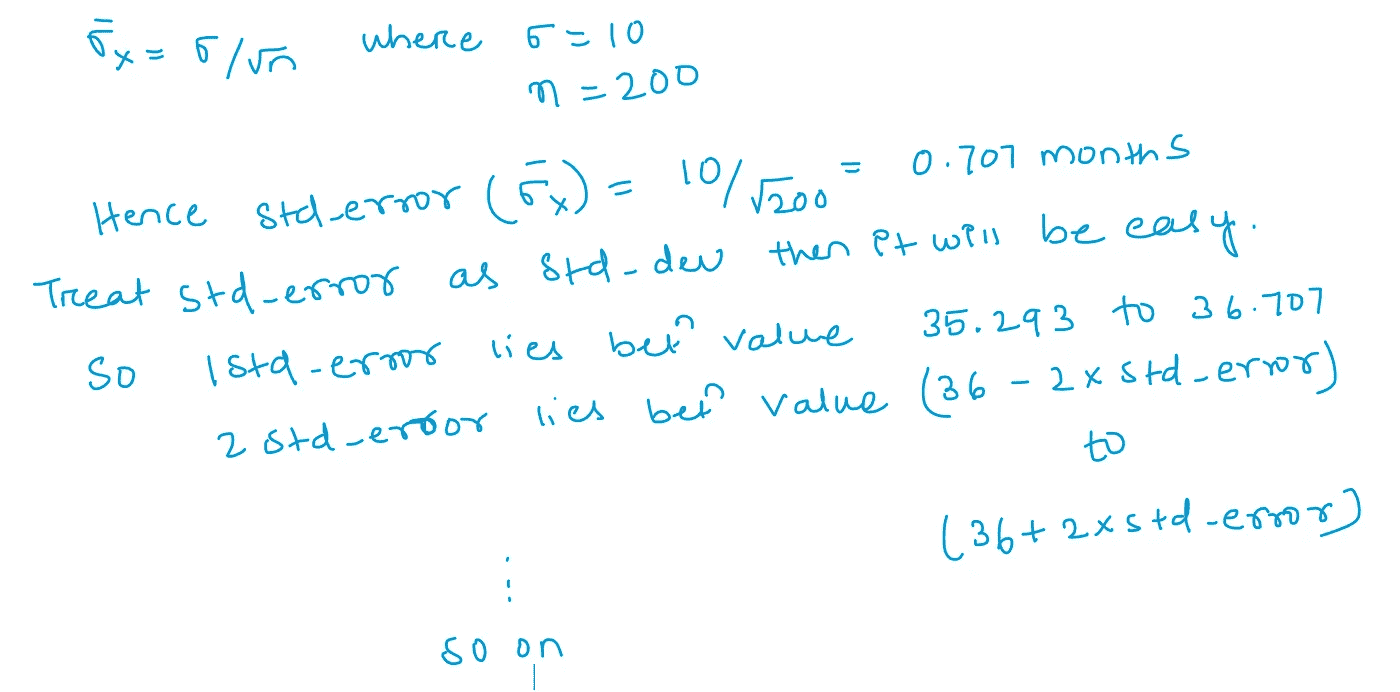 σ̄x = σ/√n where σ = 10
n = 200
Hence std-error (σ̄x) = 10/√200 = 0.707 months
Treat std-error as std-dev then it will be easy.
So 1 std-error lies betⁿ value 35.293 to 36.707
2 std-error lies betⁿ value (36 - 2 x std-error)
to
(36 + 2 x std-error)
⋮
so on